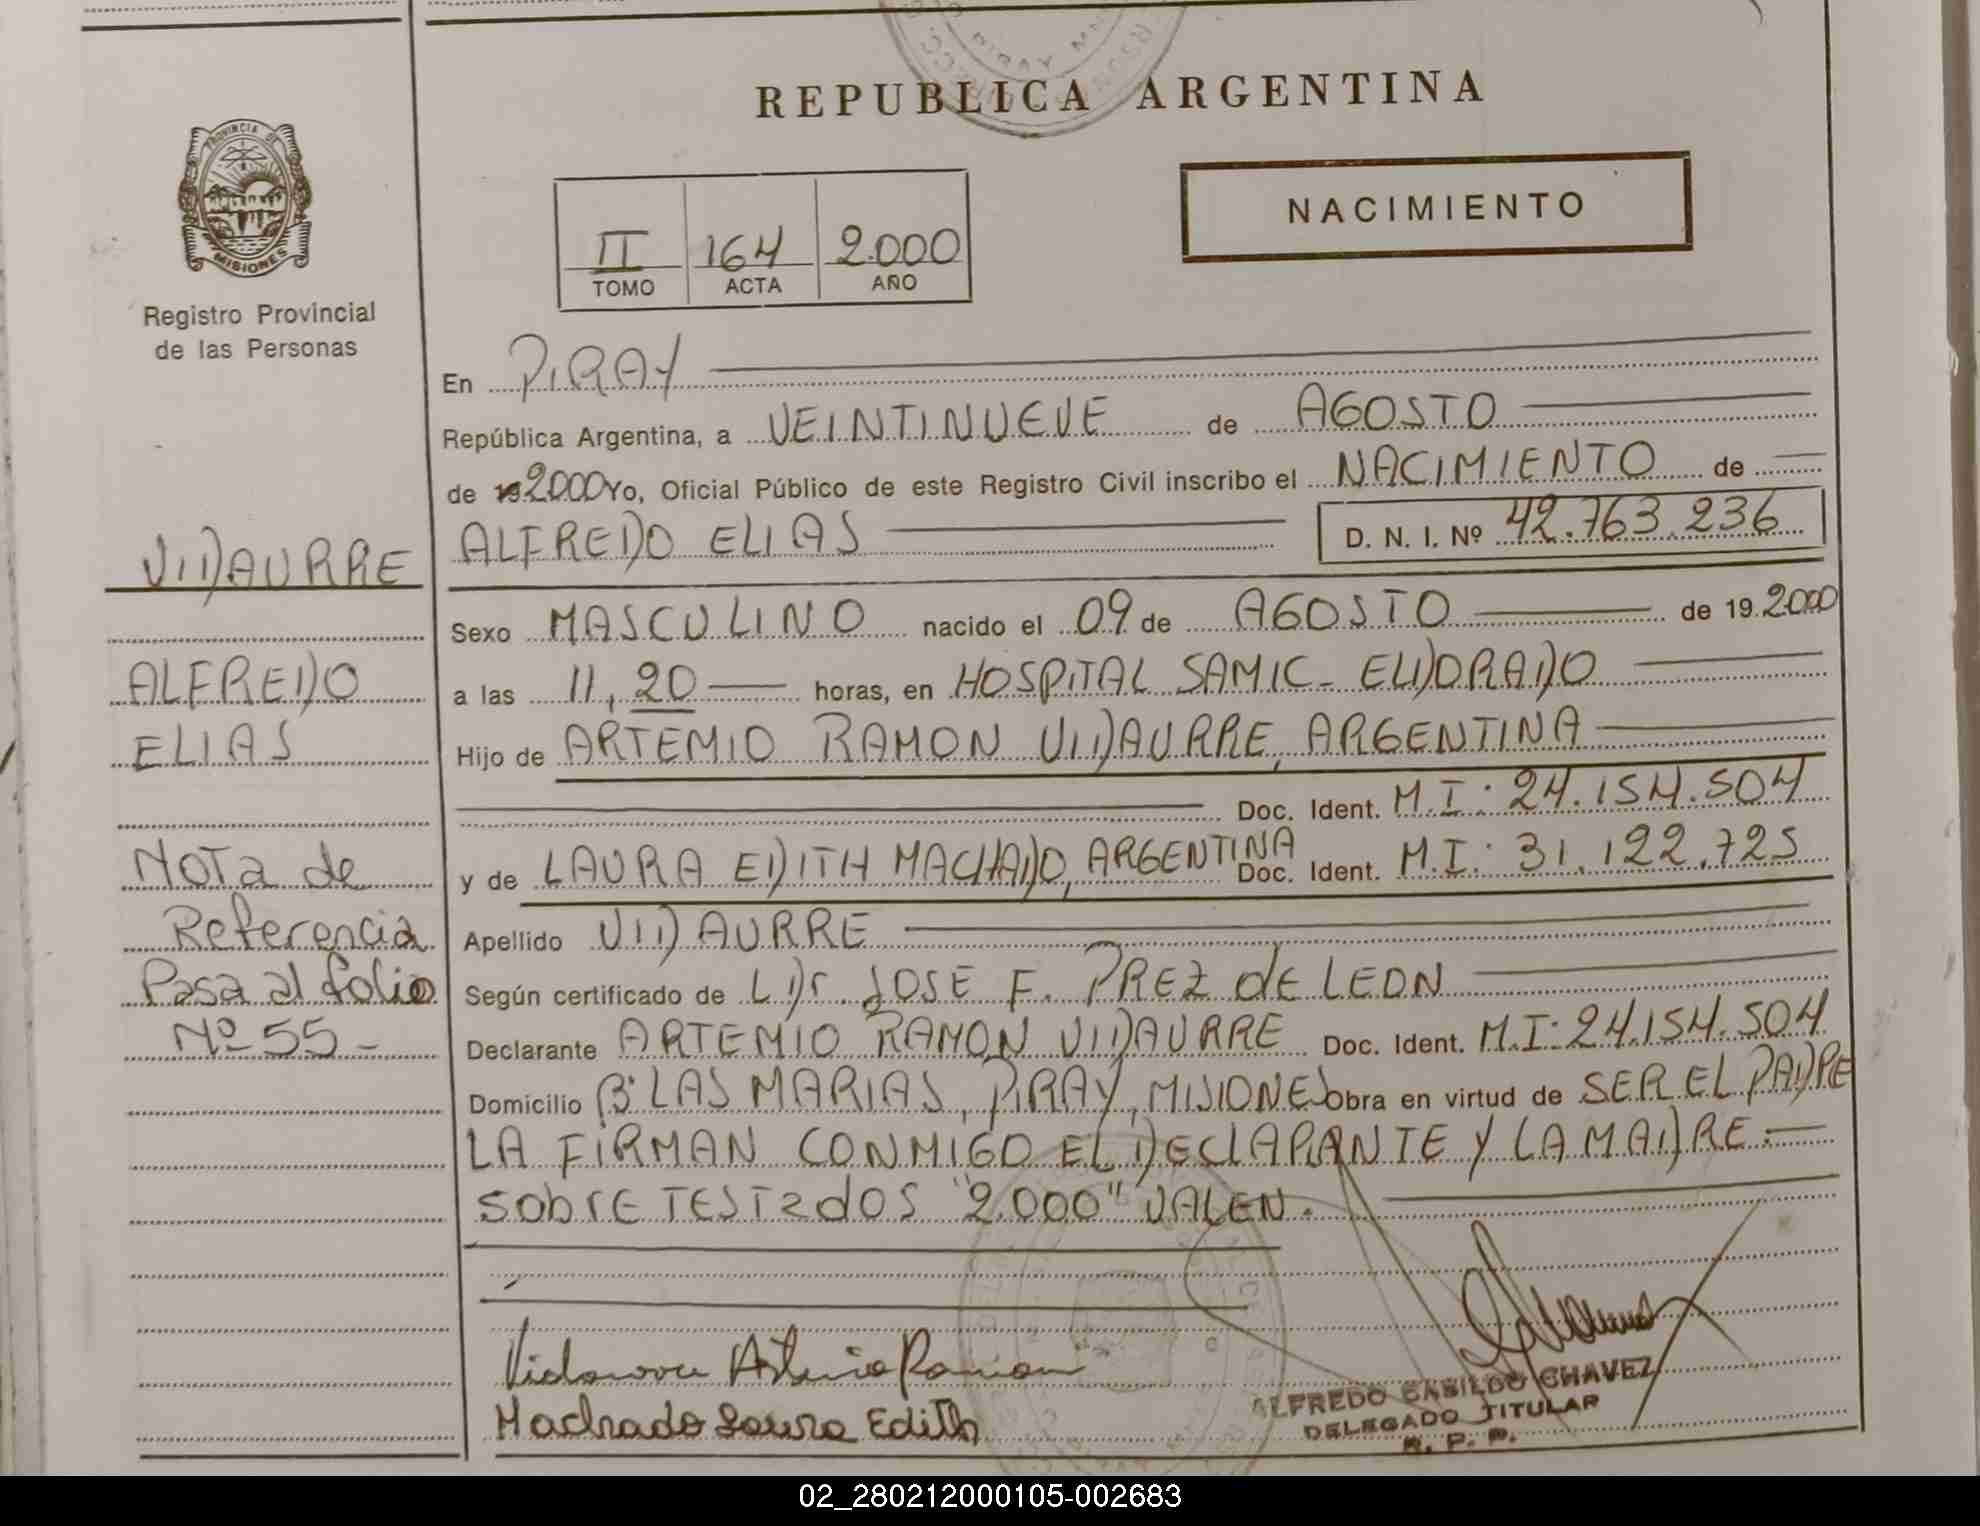 REPUBLICA ARGENTINA
PROVINCIA DE
MISIONES
Registro Provincial
de las Personas
II 164 2.000
TOMO ACTA AÑO
NACIMIENTO
En PIRAY
República Argentina, a VEINTINUEVE de AGOSTO
de 19 2000 Yo, Oficial Público de este Registro Civil inscribo el NACIMIENTO de
ALFREDO ELIAS D. N. I. Nº 42.763.236
Sexo MASCULINO nacido el 09 de AGOSTO de 19 2.000
a las 11,20 horas, en HOSPITAL SAMIC - ELDORADO
Hijo de ARTEMIO RAMON VIDAURRE, ARGENTINA
Doc. Ident. M.I: 24.154.504
y de LAURA EDITH MACHADO, ARGENTINA Doc. Ident. M.I: 31.122.725
Apellido VIDAURRE
Según certificado de L Dr. JOSE F. PREZ dE LEON
Declarante ARTEMIO RAMON VIDAURRE Doc. Ident. M.I: 24.154.504
Domicilio Bº LAS MARIAS, PIRAY, MISIONES obra en virtud de SER EL PADRE
LA FIRMAN CONMIGO EL DECLARANTE Y LA MADRE.-
SobrE TESTadOS "2.000" VALEN.
VIDAURRE
ALFREDO
ELIAS
NOTa de
Referencia
Pasa al folio
Nº 55 -
Ramon
Machado Laura Edith
ALFREDO CASILDO CHAVEZ
DELEGADO TITULAR
R. P. P.
02_280212000105-002683